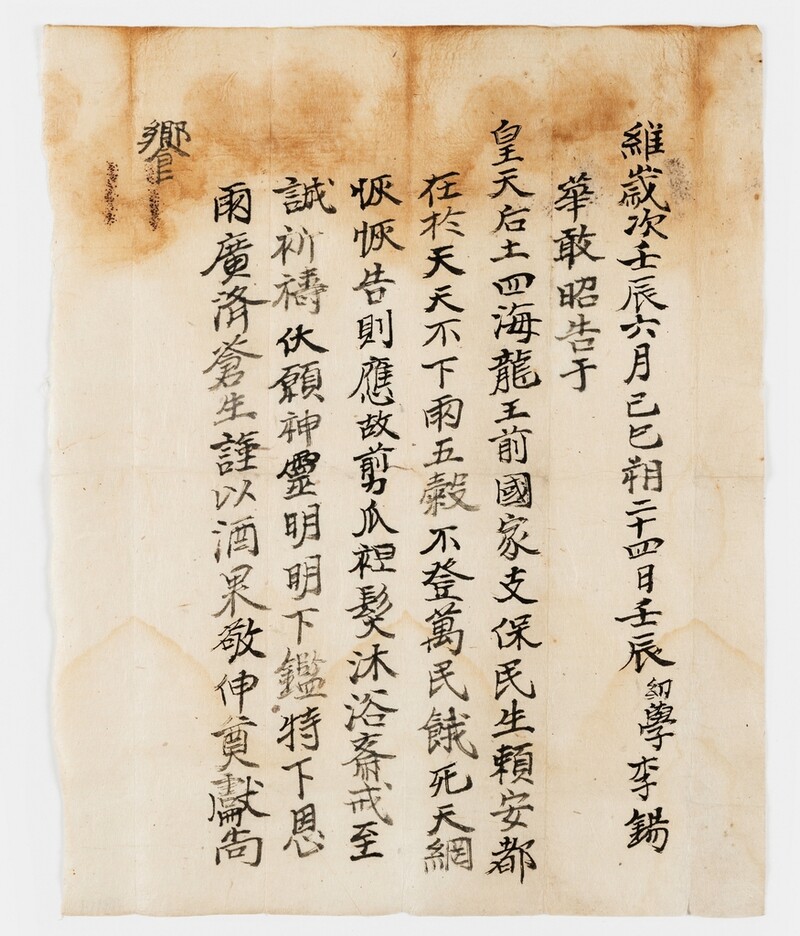 維歲次壬辰六月己巳朔二十四日壬辰幼學李錫
華敢昭告于
皇天后土四海龍王前國家支保民生賴安都
在於天天不下雨五穀不登萬民餓死天網
恢恢告則應故剪爪裎髮沐浴齋戒至
誠祈禱伏願神靈明明下鑑特下恩
雨廣濟蒼生謹以酒果敬伸奠獻尙
饗